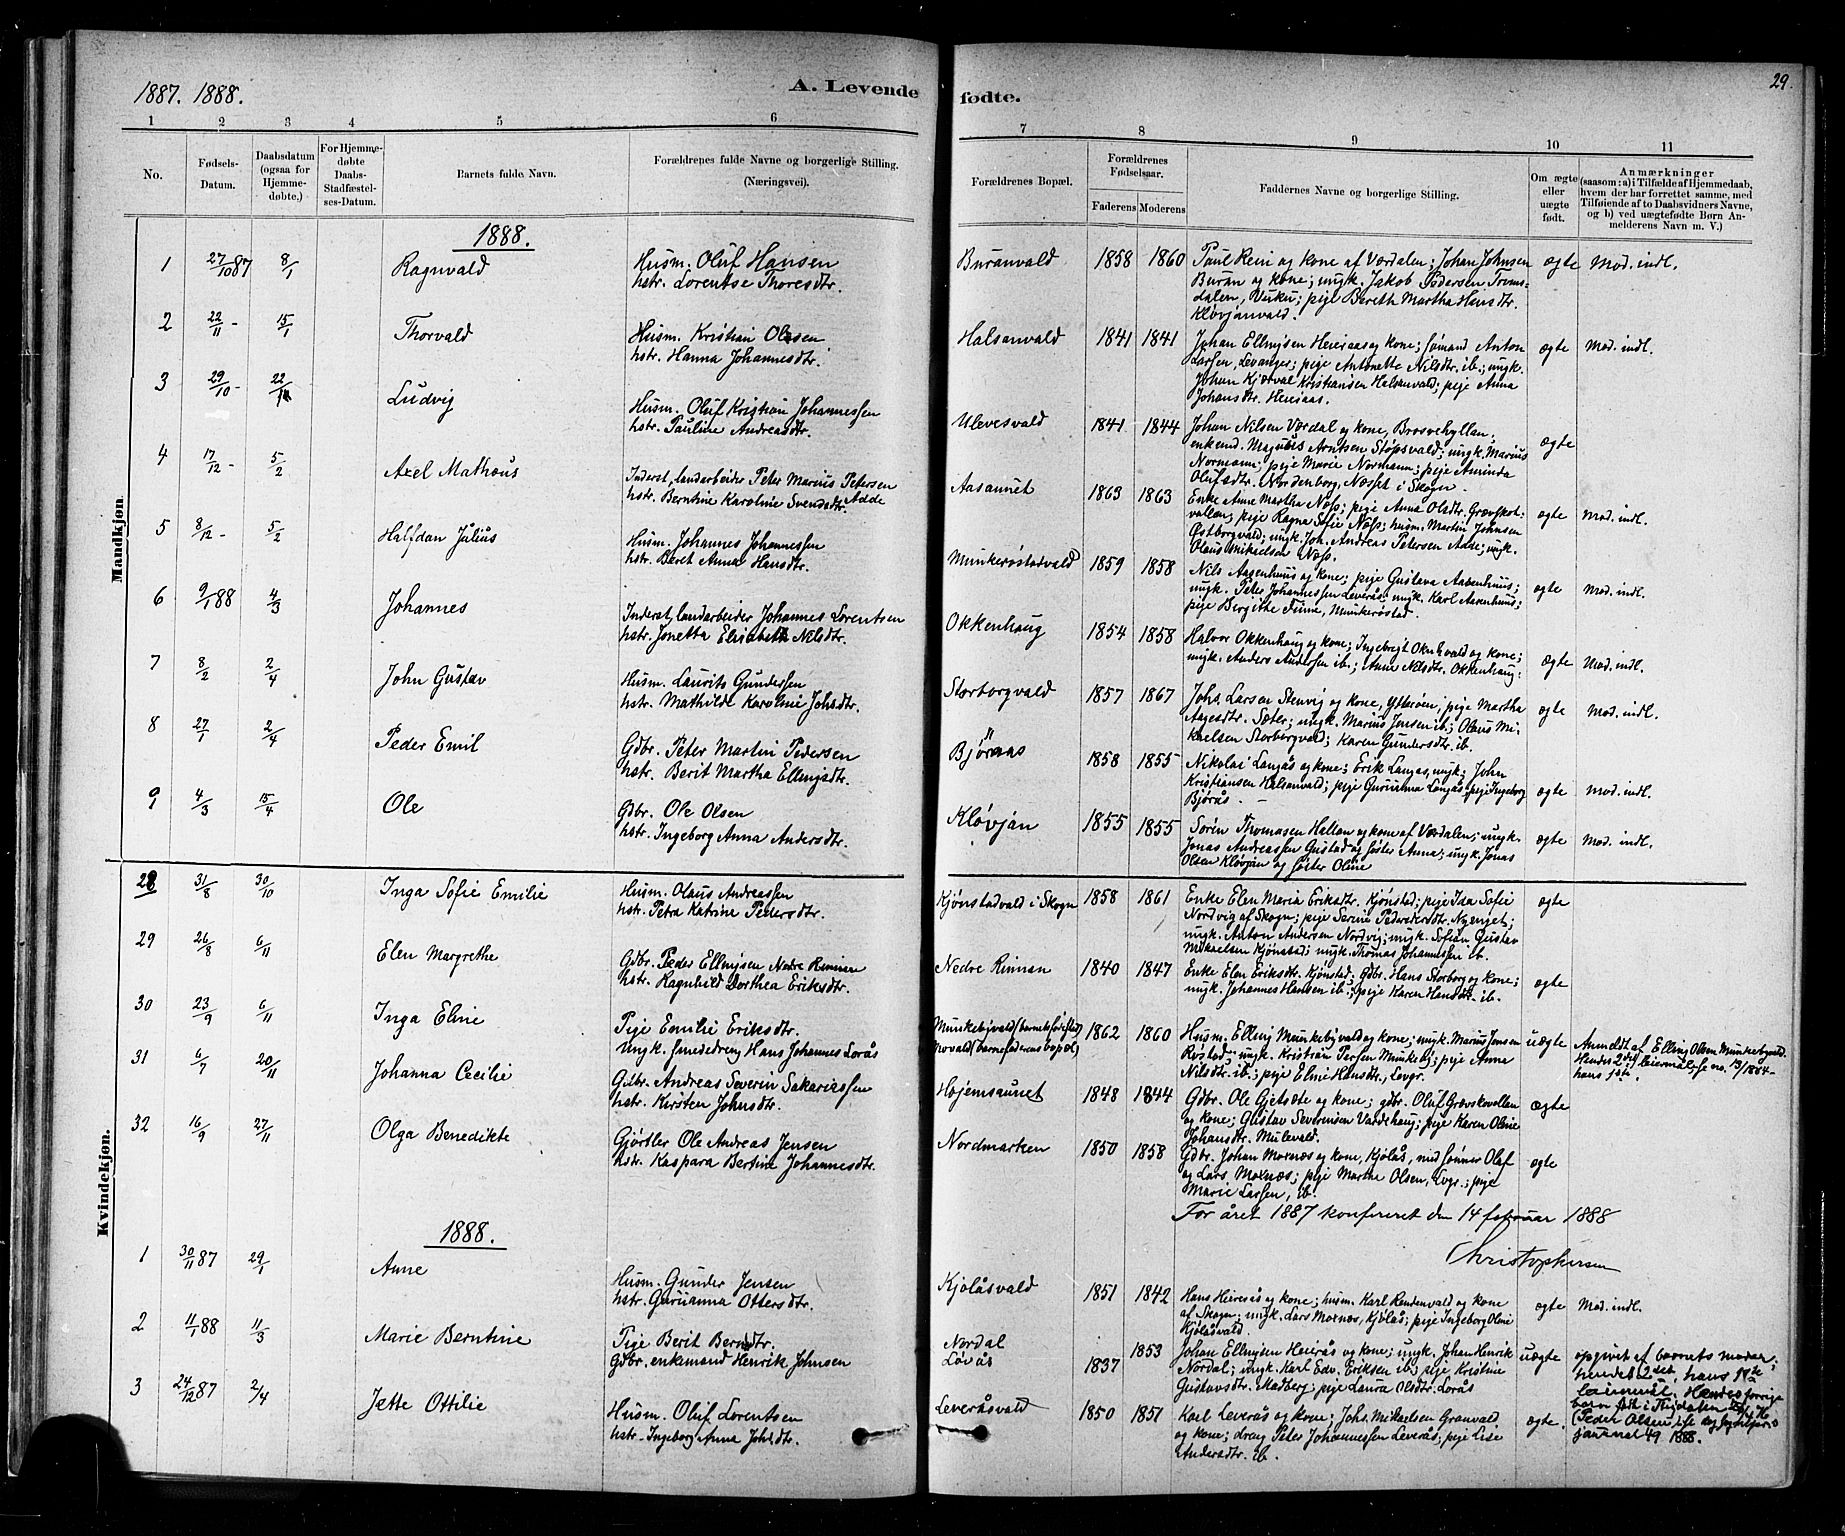 1887. 1888.
A. Levende fødte.
29.
1 2 3 4 5 6 7 8 9 10 11
No.
Fødsels-Datum.
Daabsdatum (ogsaa for Hjemme-døbte.)
For Hjemme-døbte Daabs-Stadfæstel-ses-Datum.
Barnets fulde Navn.
Forældrenes fulde Navne og borgerlige Stilling.
(Næringsvei).
Forældrenes Bopæl.
Forældrenes Fødselsaar.
Faderens Moderens
Faddernes Navne og borgerlige Stilling.
Om ægte eller uægte født.
Anmærkninger
(saasom: a) i Tilfælde af Hjemmedaab, hvem der har forrettet samme, med Tilføiende af to Daabsvidners Navne, og b) ved uægtefødte Børn An-melderens Navn m. V.)
Mandkjøn.
1888.
1 27/10 87 8/1 Ragnvald
Husm. Oluf Hansen
hstr. Lorentse Thoresdtr.
Buranvald 1858 1860
Paul Rein og kone af Værdalen; Johan Johnsen
Buran og kone; ungk. Jakob Pedersen Troms-
dalen, Vuku; pije Bereth Martha Hansdtr.
Kløvjanvald.
ægte Mod. indl.
2 22/11 - 15/1 Thorvald
Husm. Kristian Olsen
hstr. Hanna Johannesdtr.
Halsanvald 1841 1841
Johan Ellingsen Heieraas og kone; sømand Anton
Larsen, Levanger; pije Antonette Nilsdtr. ib.; ungk.
Johan Kristiansen Halsanvald; pije Anna
Johansdtr. Heieraas.
ægte Mod. indl.
3 29/10 - 22/1 Ludvig
Husm. Oluf Kristian Johannessen
hstr. Pauline Andreasdtr.
Ulevesvald 1841 1844
Johan Nilsen Værdal og kone, Brosvehyllan,
enkemd. Magnus Arntsen Støpsvald; ungk. Marius
Normann; pije Marie Normann; pije
Olufsdtr. Nordenborg, Næsset i Skogn.
ægte
4 17/12 - 5/2 Axel Mathæus
Inderst, landarbeider Peter Marius Petersen
hstr. Berntine Karoline Svendsdtr. Adde
Aasannet 1863 1863
Enke Anne Martha Næss; pije Anna Olsdtr. Grævskot-
vallen; pije Ragna Sofie Næss; husm. Martin Johnsen
Østborgvald; ungk. Joh. Andreas Petersen Adde; ungk.
Olaus Mikaelsen Næss.
ægte Mod. indl.
5 8/12 - 5/2 Halfdan Julius
Husm. Johannes Johannessen
hstr. Beret Anna Hansdtr.
Munkerøstadvald 1859 1858
Nils Aasenhuus og kone; pije Gustava Aasenhuus;
ungk. Peter Johannessen Leverås; ungk. Karl Aasenhuus;
pije Birgitte Finne, Munkerøstad.
ægte Mod. indl.
6 9/1 88 4/3 Johannes
Inderst, landarbeider Johannes Lorentsen
hstr. Jonetta Elisabeth Nilsdtr.
Okkenhaug 1854 1858
Halvor Okkenhaug og kone; Ingebrigt Okk.vald og kone;
ungk. Anders Andersen ib.; Anne Nilsdtr. Okkenhaug.
ægte Mod. indl.
7 8/2 2/4 John Gustav
Husm. Laurits Gundersen
hstr. Mathilde Karoline Johsdtr.
Storborgvald 1857 1867
Johs. Larsen Stenvig og kone, Ytterøen; pije Martha
Aagesdtr. Sæter; ungk. Marius Jensen ib.; Olaus Mi-
kaelsen Storborgvald; Karen Gundersdtr. ib.
ægte Mod. indl.
8 27/1 2/4 Peder Emil
Gdbr. Peter Martin Pedersen
hstr. Berit Martha Ellingsdtr.
Bjøraas 1858 1855
Nikolai Langås og kone; Erik Langås, ungk.; John
Kristiansen Halsanvald; pije Gurianna Langås; pije Ingeborg
Bjørås.
ægte Mod. indl.
9 4/3 15/4 Ole
Gdbr. Ole Olsen
hstr. Ingeborg Anna Andersdtr.
Kløvjan 1855 1855
Søren Thomasen Hallan og kone af Værdalen; ungk.
Jonas Andreassen Gustad og søster Anna; ungk. Jonas
Olsen Kløvjan og søster Oline
ægte Mod. indl.
Kvindekjøn.
28 31/8 30/10 Inga Sofie Emilie
Husm. Olaus Andreassen
hstr. Petra Katrine Pedersdtr.
Kjønstadvald i Skogn 1858 1861
Enke Elen Maria Eriksdtr. Kjønstad; pije Ida Sofie
Nordvig af Skogn; pije Serine Pedersdtr. Nyenget;
ungk. Anton Andersen Nordvig; ungk. Sofian Gustav
Mikaelsen Kjønstad; ungk. Thomas Johannessen ib.
ægte
29 26/8 6/11 Elen Margrethe
Gdbr. Peder Ellingsen Nedre Rinnan
hstr. Ragnhild Dorthea Eriksdtr.
Nedre Rinnan 1840 1847
Enke Elen Eriksdtr. Kjønstad, Gdbr. Hans Storborg og kone;
ungk. Johannes Hansen ib.; pije Karen Hansdtr. ib.
ægte
30 23/9 6/11 Inga Eline
Pije Emilie Eriksdtr.
Ungk. smededreng Hans Johannes Lorås
Munkebyvald (barnets fødested)
Movald (barnefaderens bopæl) 1862 1860
Husm. Elling Munkebyvald og kone; ungk. Marius Jensen
Røstad; ungk. Kristian Persen Munkeby; pije Anna
Nilsdtr. ib.; pije Elmi Hansdtr., Levgr.
uægte
Anmeldt af Elling Olsen Munkebyvald.
Hendes 2det leiermål, se no. 13/1884 -
hans 1ste.
31 6/7 20/11 Johanna Cecilie
Gdbr. Andreas Severin Sakariassen
hstr. Kirsten Johnsdtr.
Højemsaunet 1848 1844
Gdbr. Ole Gjetsæte og kone; gdbr. Oluf Grævskovellan
og kone; Gustav Severinsen Vardehaug; pije Karen Oline
Johansdtr. Mulevald.
ægte
32 16/9 27/11 Olga Benedikte
Gjørtler Ole Andreas Jensen
hstr. Kaspara Bertine Johannesdtr.
Nordmarken 1850 1858
Gdbr. Johan Moxnæs og kone, Kjølås, med sønner Olaf
og Lars Moxnæs; pije Marthe Olsen, Lvgr.; pije
Marie Larsen, ib.
ægte
For året 1887 konfereret den 14 februar 1888
Christophersen
1888.
1 30/11 87 29/1 Anne
Husm. Gunder Jensen
hstr. Gurianna Ottersdtr.
Kjølåsvald 1851 1842
Hans Heieraås og kone; husm. Karl Rendenvald og kone
af Skogn; ungk. Lars Moxnæs, Kjølås; pije Ingeborg Oline
Kjølåsvald.
ægte Mod. indl.
2 11/1 88 11/3 Marie Berntine
Pige Berit Berndtr.
Gdbr. enkemand Henrik Johnsen
Nordal
Løvås 1837 1853
Johan Ellingsen Heierås og kone; ungk. Johan Henrik
Nordal; ungk. Karl Edv. Eriksen ib.; pije Kristine
Gustavsdtr. Madberg; pije Laura Olsdtr. Lorås
uægte
opgivet af barnets moder;
hendes 2det, hans 1ste
leiermål. Hendes forrige
barn født i Trondalen
(Peder Olsen)
journal 49 1888.
3 24/12 87 2/4 Jette Ottilie
Husm. Oluf Lorentsen
hstr. Ingeborg Anna Johsdtr.
Leveråsvald 1850 1851
Karl Leverås og kone; Johs. Mikaelsen Granvald
og kone; dreng Peter Johannessen Leverås; pije Lise
Andersdtr. ib.
ægte.